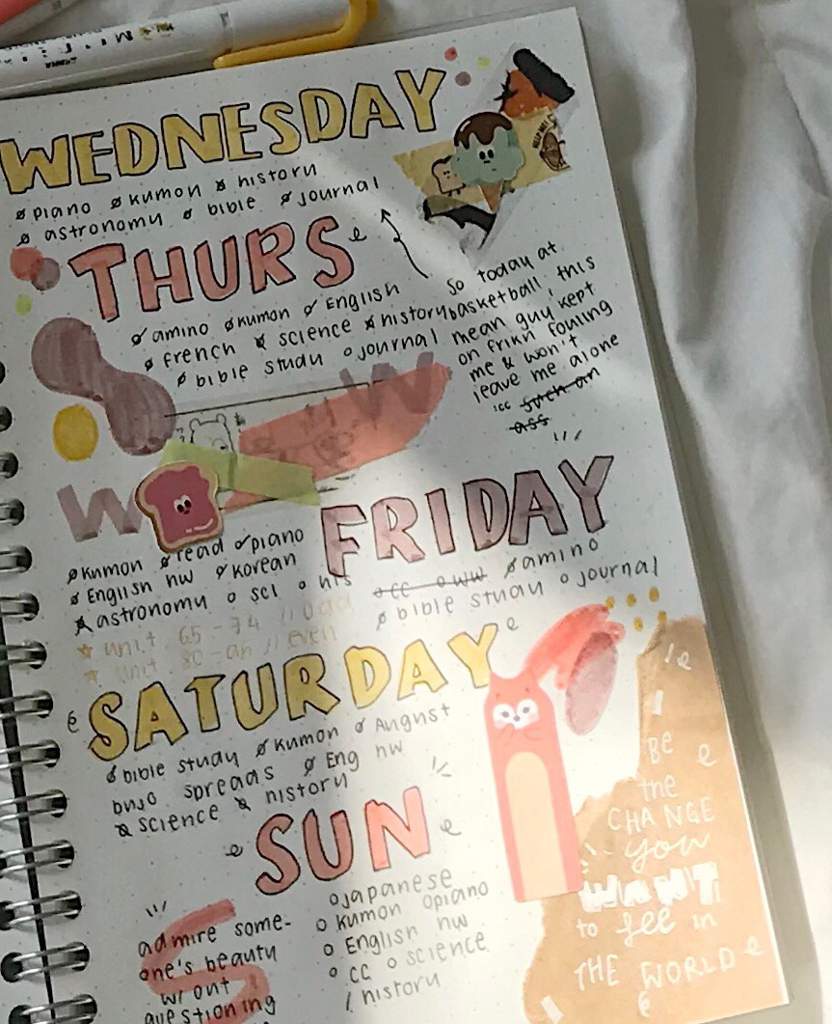 WEDNESDAY
piano kumon history
astronomy bible journal
THURS
amino kumon English
french science history
bible study journal
So today at
basketball, this
mean guy kept
on frikn fouling
me & won't
leave me alone
such an
ass
W
W
FRIDAY
kumon read piano
English hw Korean
astronomy sci his
cc ww amino
bible study journal
unit 65-74 // odd
unit // even
SATURDAY
bible study kumon August
bujo spreads Eng hw
science history
SUN
admire some-
one's beauty
w/out
questioning
japanese
kumon piano
English hw
cc science
history
Be
the
CHANGE
you
WANT
to see in
THE WORLD